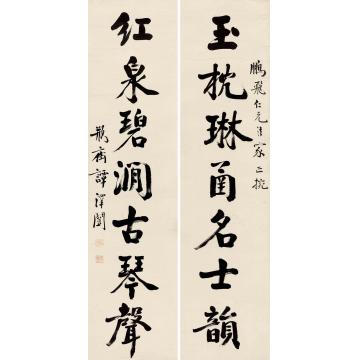 鵬飛仁兄法家正
玉枕琳圅名士韻
紅泉碧澗古琴聲
瓶齋譚澤闓